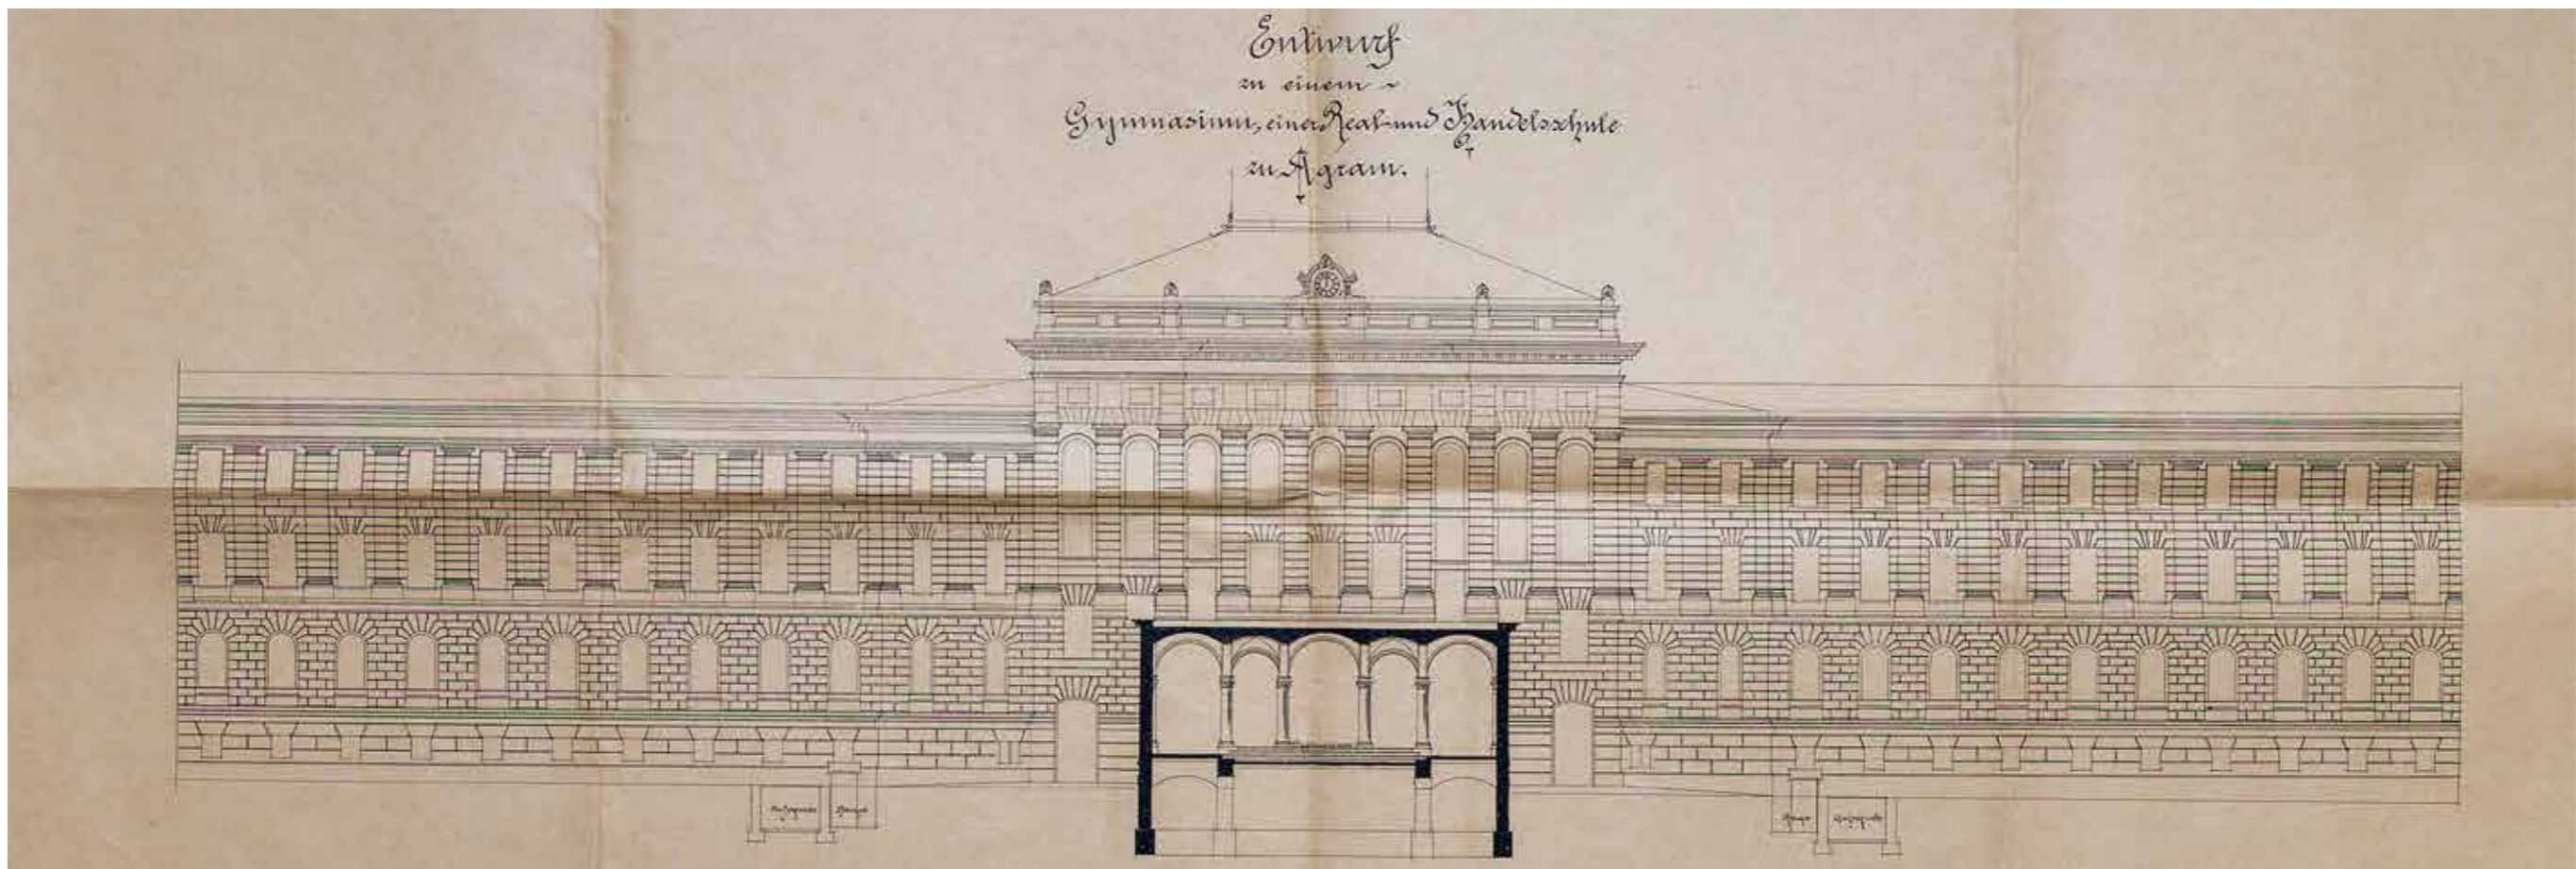 Entwurf
zu einem
Gymnasium, einer Real- und Handelsschule
zu Agram.